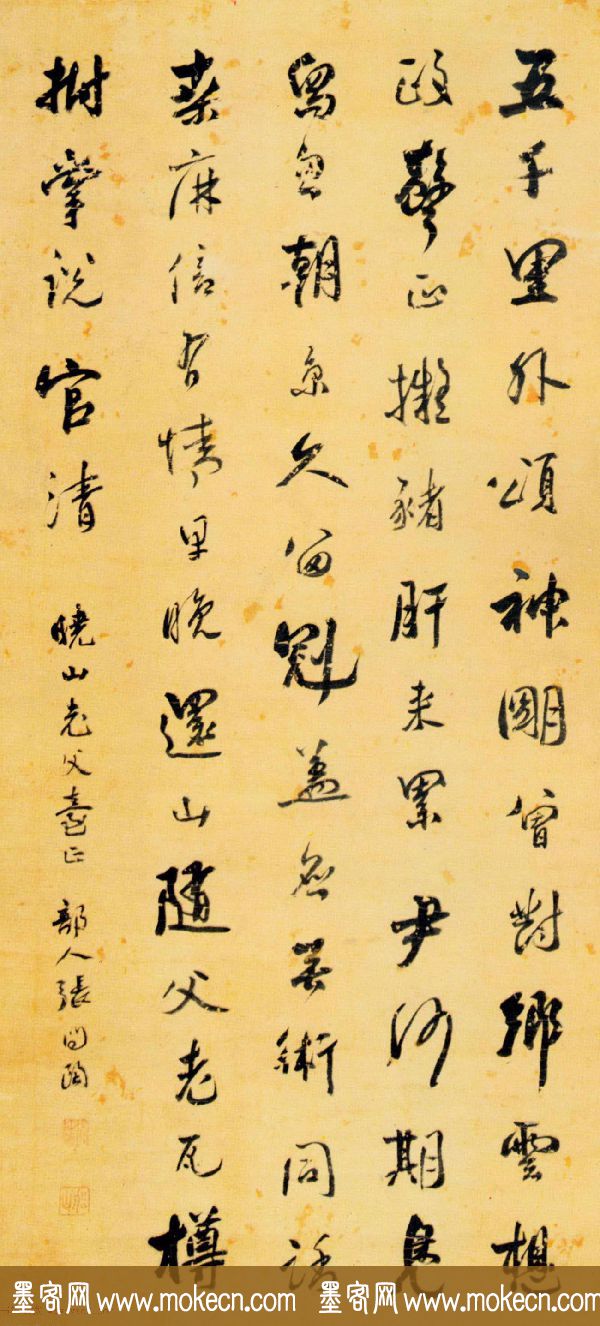 五千里外頌神明曾對鄉雲想
政聲正擬豬肝來累尹何期鳧
舄忽朝京久留冠蓋無術同話
桑麻信有情早晚還山隨父老瓦樽
拊掌說官清
曉山老父臺正 部人張問陶
墨客网 www.mokecn.com 墨客网 www.mokecn.com